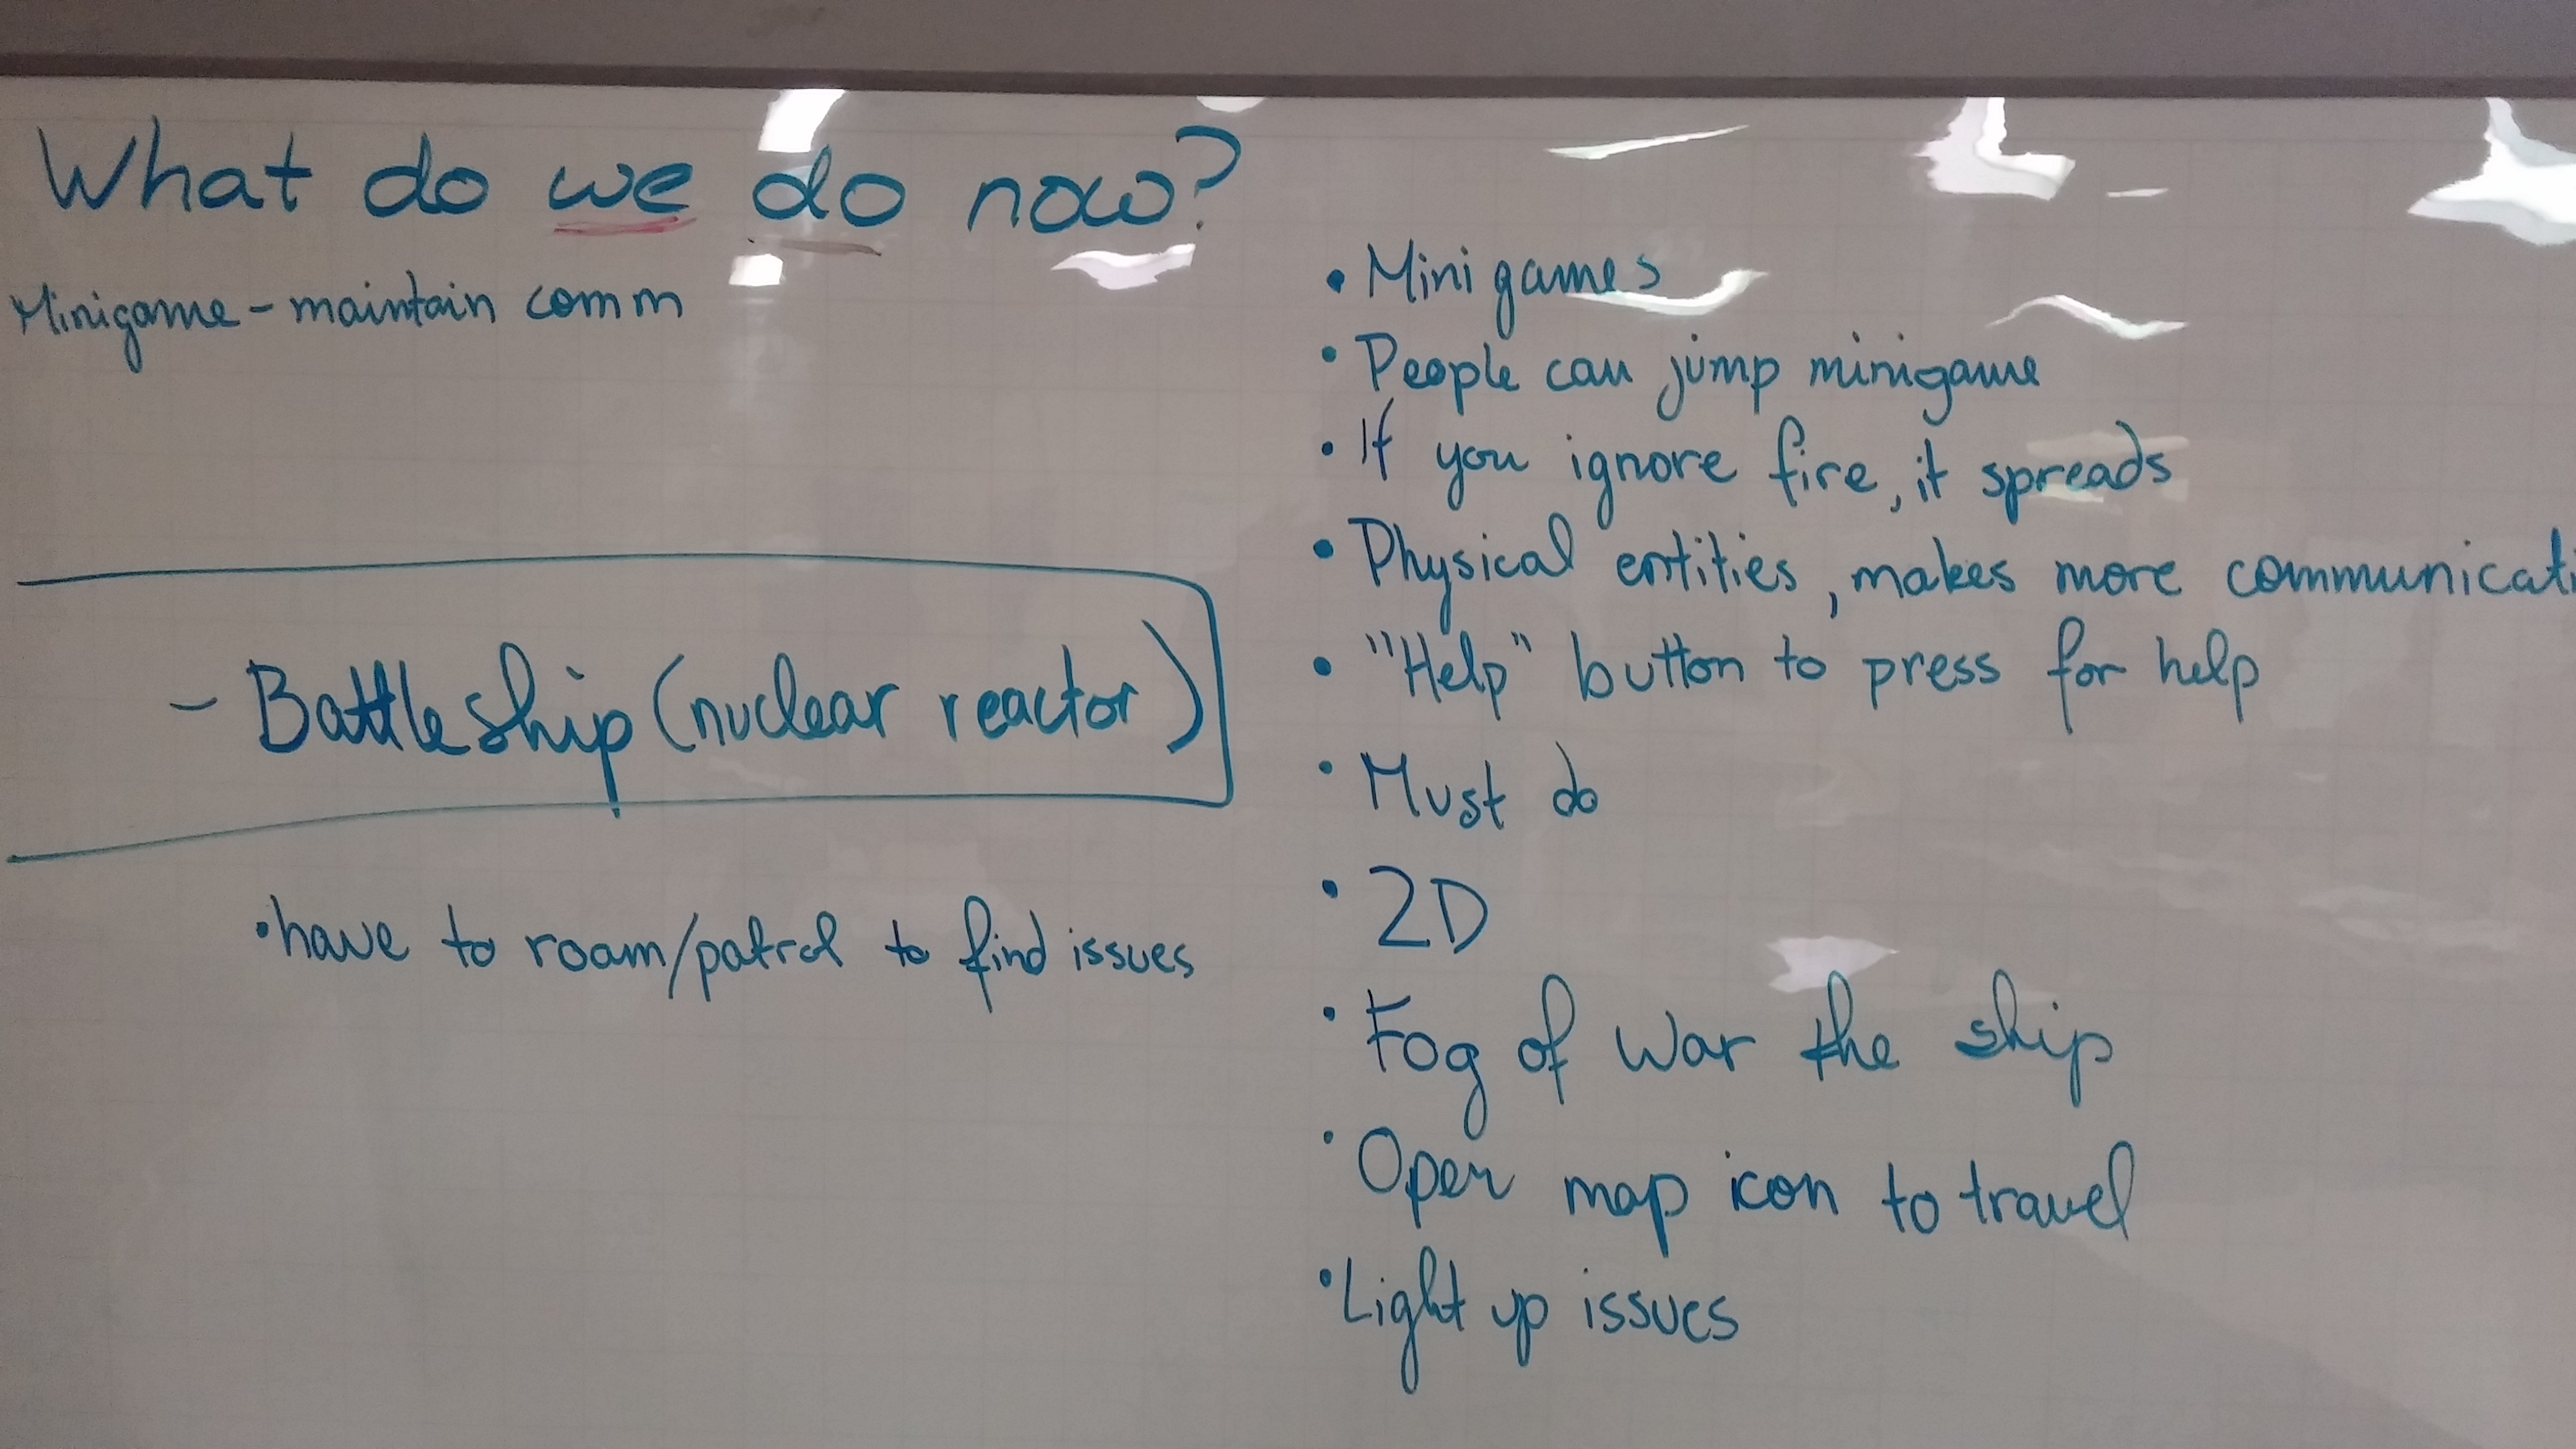 What do we do now?
Minigame - maintain comm
- Battleship (nuclear reactor)
• have to roam/patrol to find issues
• Minigames
• People can jump minigame
• If you ignore fire, it spreads
• Physical entities, makes more communicati
• "Help" button to press for help
• Must do
• 2D
• Fog of war the ship
• Open map icon to travel
• Light up issues